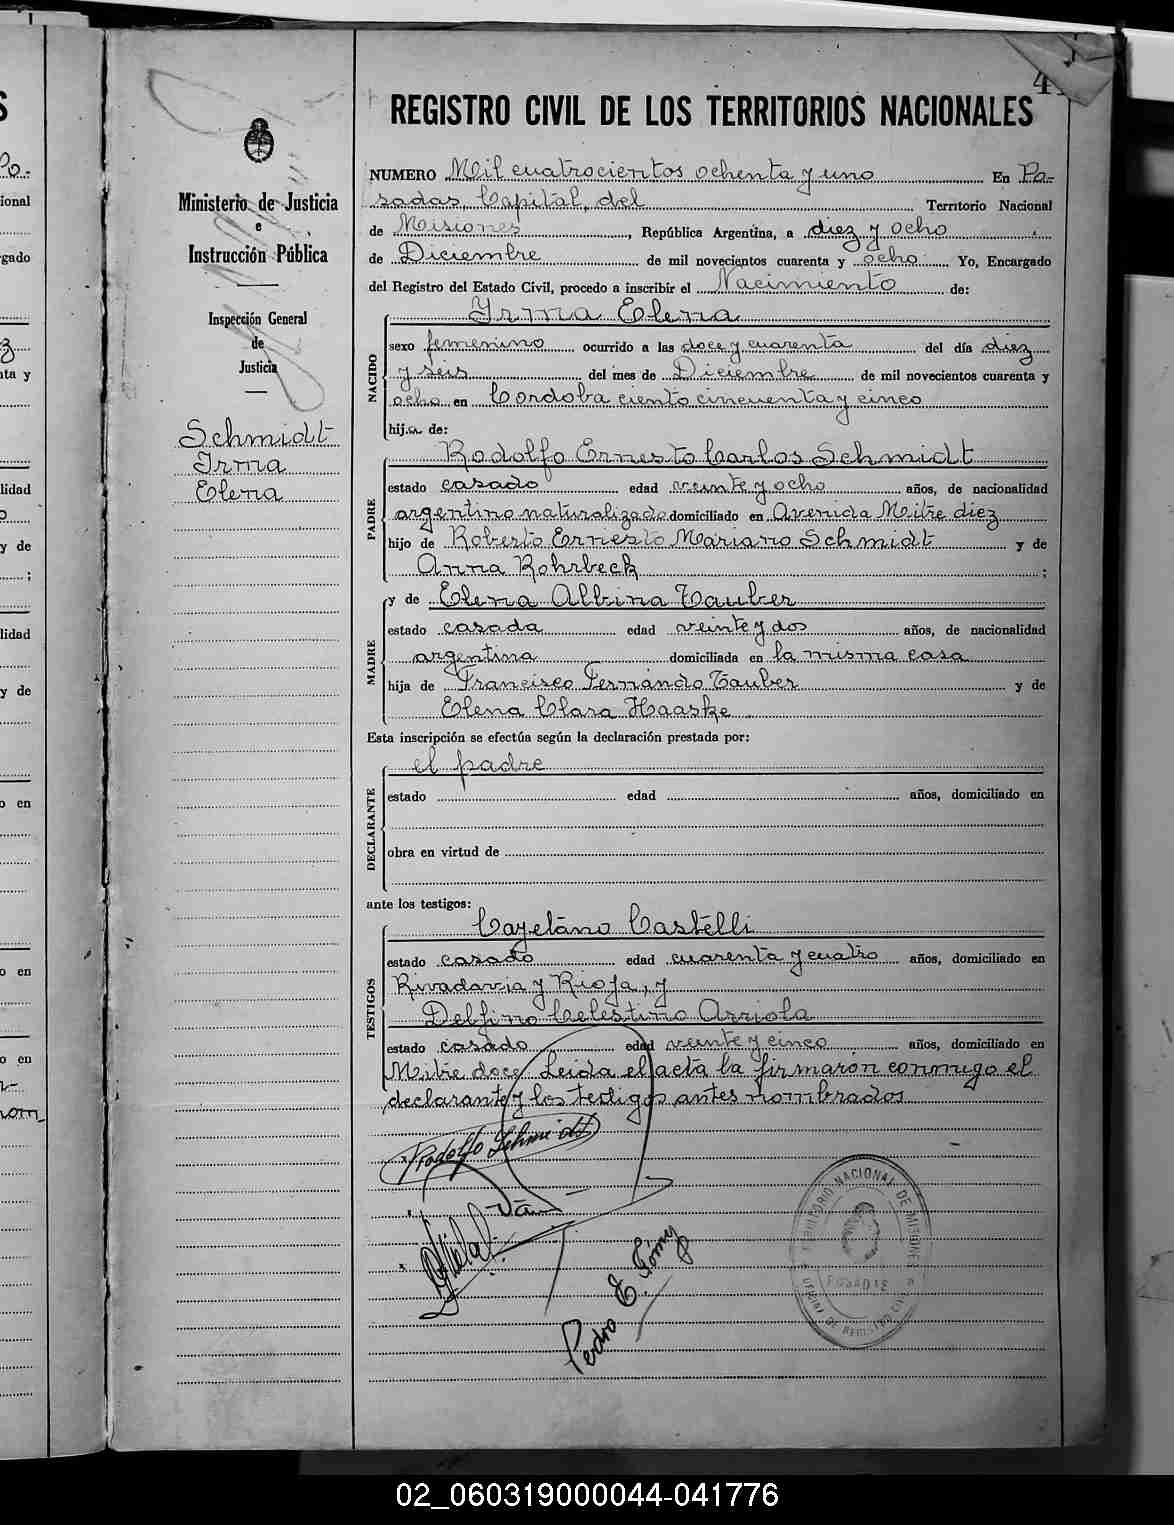 4
REGISTRO CIVIL DE LOS TERRITORIOS NACIONALES
Ministerio de Justicia
e
Instrucción Pública
Inspección General
de
Justicia
Schmidt
Irma
Elena
NUMERO Mil cuatrocientos ochenta y uno En Po-
sadas, Capital, del Territorio Nacional
de Misiones, República Argentina, a diez y ocho
de Diciembre de mil novecientos cuarenta y ocho Yo, Encargado
del Registro del Estado Civil, procedo a inscribir el Nacimiento de:
NACIDO
Yrma Elena
sexo femenino ocurrido a las doce y cuarenta del día diez
y seis del mes de Diciembre de mil novecientos cuarenta y
ocho en Cordoba ciento cincuenta y cinco
hija de:
PADRE
Rodolfo Ernesto Carlos Schmidt
estado casado edad veinte y ocho años, de nacionalidad
argentino naturalizado domiciliado en Avenida Mitre diez
hijo de Roberto Ernesto Mariano Schmidt y de
Anna Rohrbeck ;
MADRE
y de Elena Albina Tauber
estado casada edad veinte y dos años, de nacionalidad
argentina domiciliada en la misma casa
hija de Francisco Fernando Tauber y de
Elena Clara Haaske
Esta inscripción se efectúa según la declaración prestada por:
DECLARANTE
el padre
estado edad años, domiciliado en
obra en virtud de
ante los testigos:
TESTIGOS
Cayetano Castelli
estado casado edad cuarenta y cuatro años, domiciliado en
Rivadavia y Rioja, y
Delfino Celestino Arriola
estado casado edad veinte y cinco años, domiciliado en
Mitre doce Leida el acta la firmaron conmigo el
declarante y los testigos antes nombrados
Rodolfo Schmidt
Pedro E.
TERRITORIO NACIONAL DE MISIONES
POSADAS
OFICINA DE REGISTRO CIVIL
02_060319000044-041776